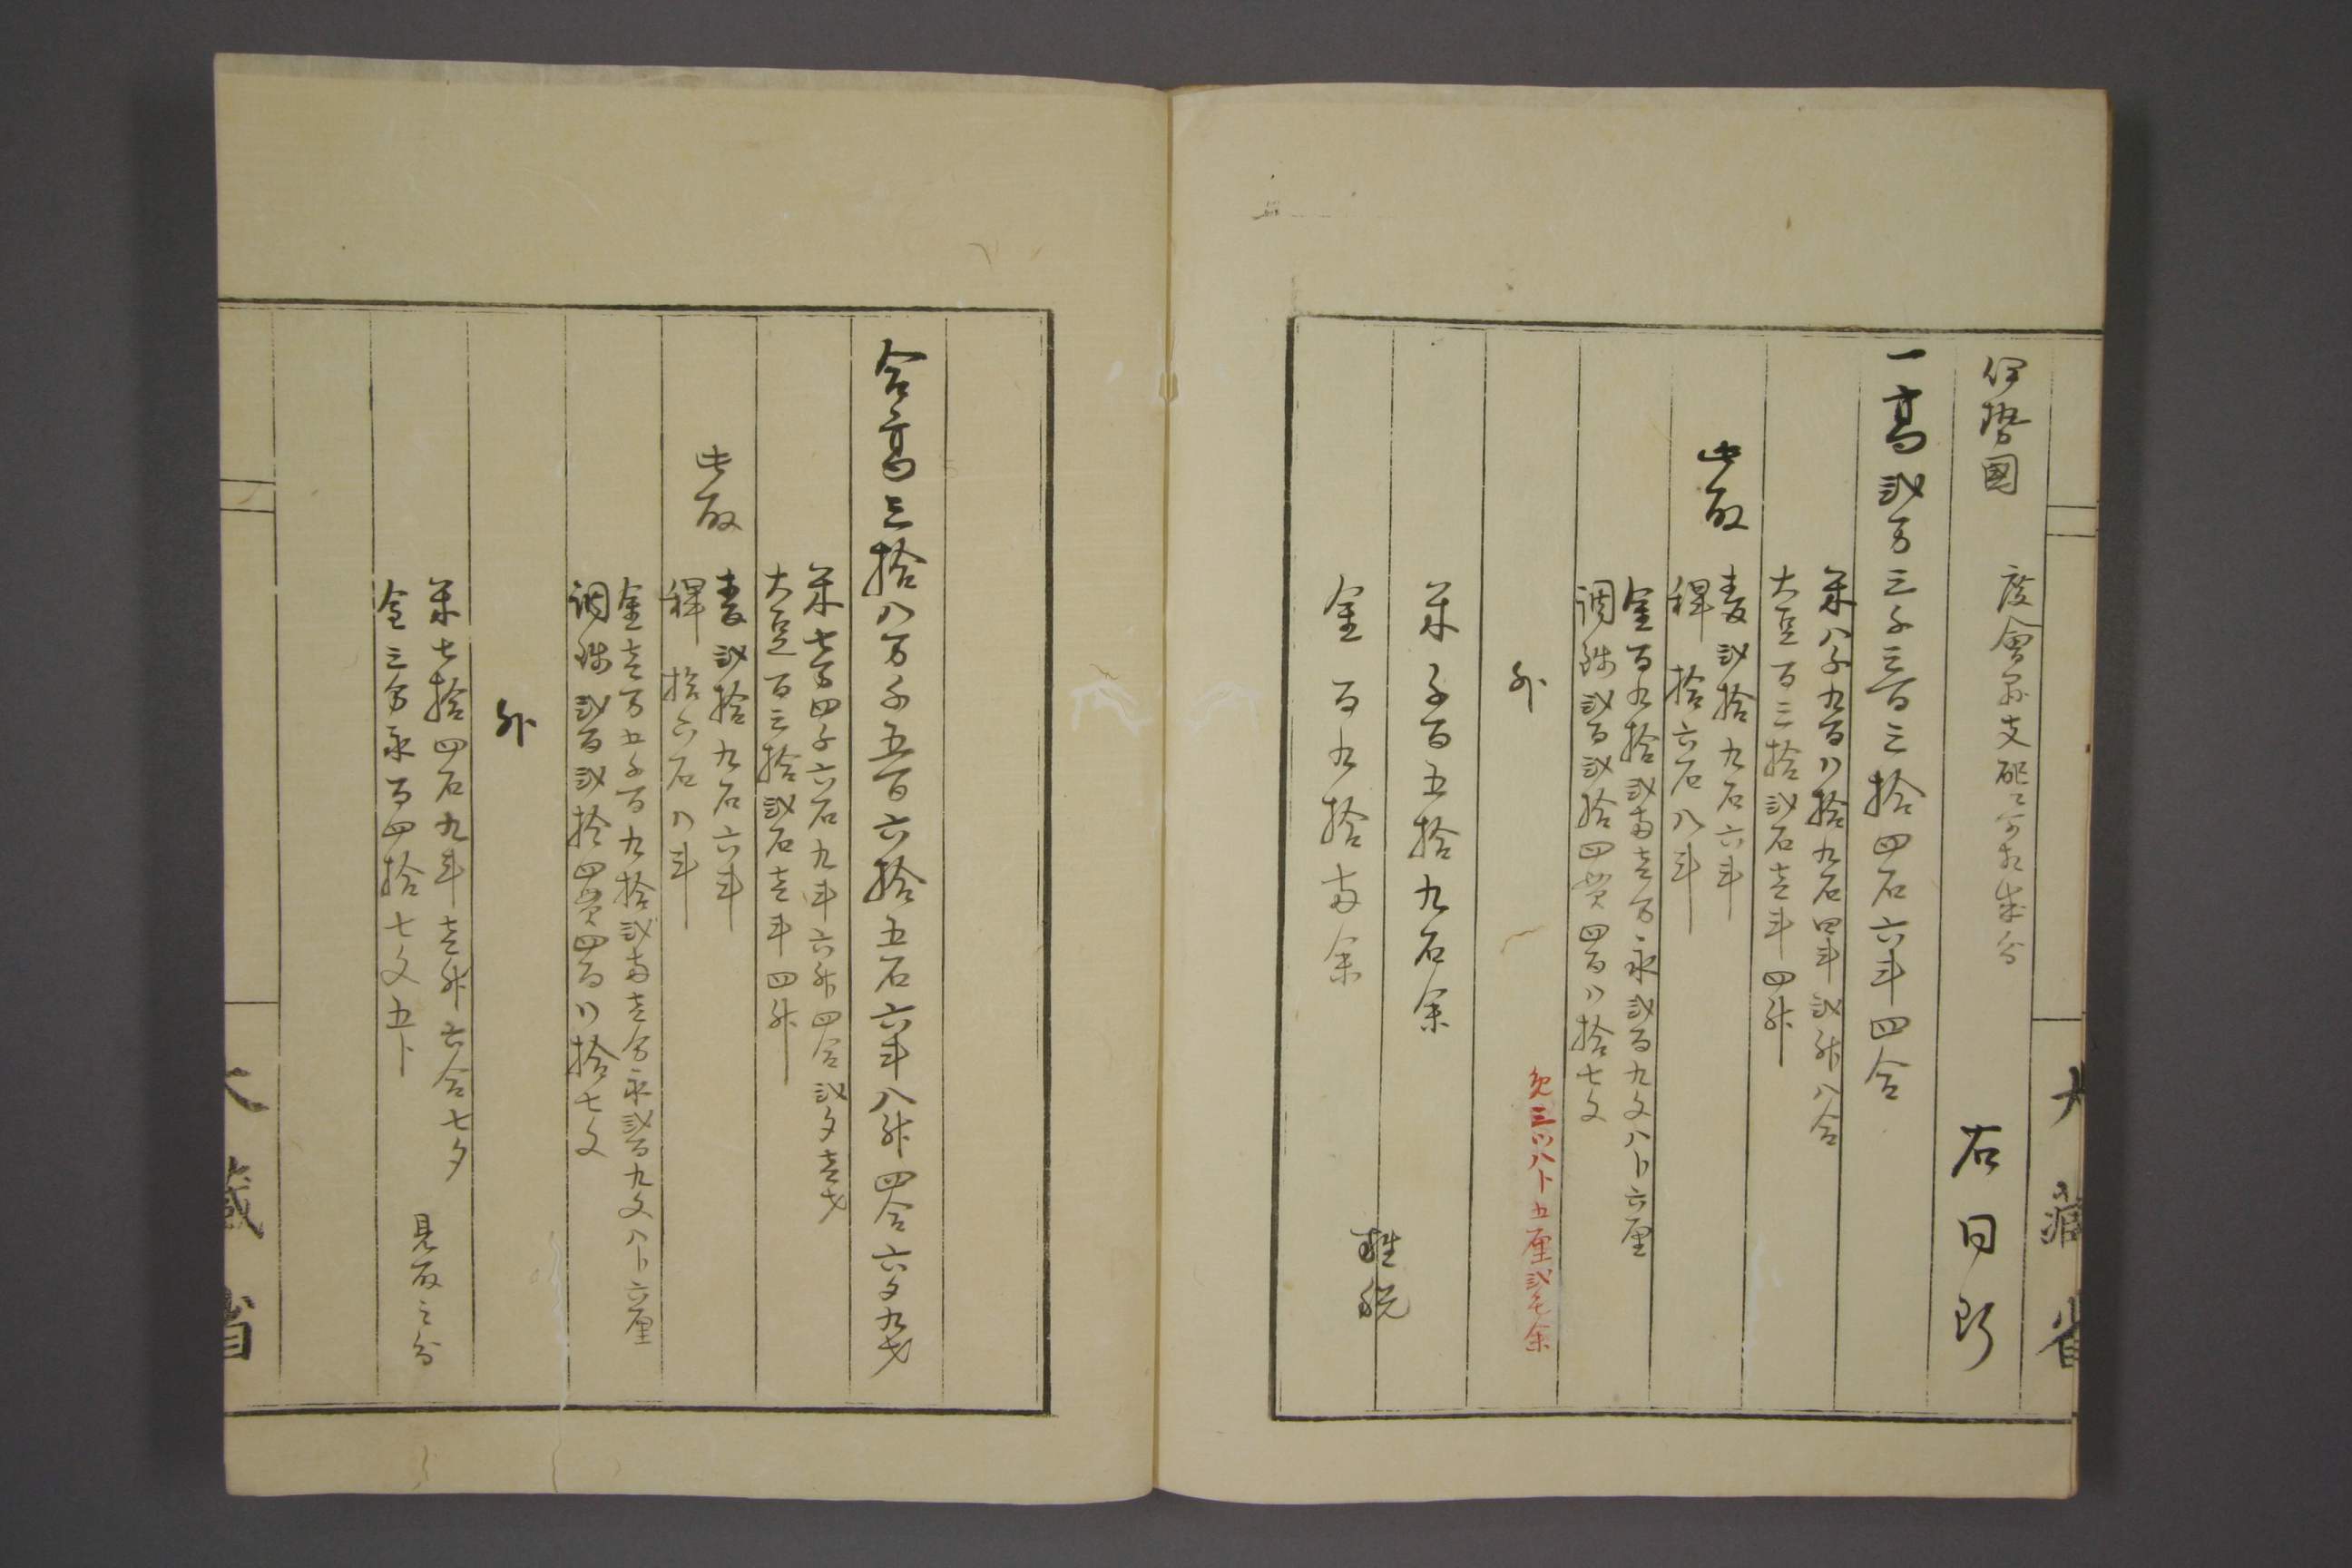 大藏省
伊勢國 度會縣支配 分
右同断
一高弐万三千三百三拾四石六斗四合
米八千九百八拾九石四斗弐升八合
大豆百三拾弐石壱斗四升
此取
麦弐拾九石六斗
稗拾六石八斗
金百九拾弐両壱分永弐百九文八卜六厘
調銭弐百弐拾四貫四百八拾七文
免三ツ八卜五厘弐毛余
外
米千百五拾九石余
金百九拾両余
雑税
合高三拾八万千五百六拾五石六斗八升四合六夕九才
米七万四千六石九斗六升四合弐夕壱才
大豆百三拾弐石壱斗四升
此取
麦弐拾九石六斗
稗拾六石八斗
金壱万五千百九拾弐両壱分永弐百九文八卜六厘
調銭弐百弐拾四貫四百八拾七文
外
米七拾四石九斗壱升六合七夕
金三分永百四拾七文五卜
見取之分
大藏省